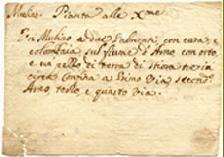 Mulino. Pianta alle Xme
Un Mulino a due Palmenti con casa, e
colombaia sul fiume d'Arno con orto
e un cello di terra di stiora
circa Confina a Primo Via, second
Arno, terzo, e quarto Via.